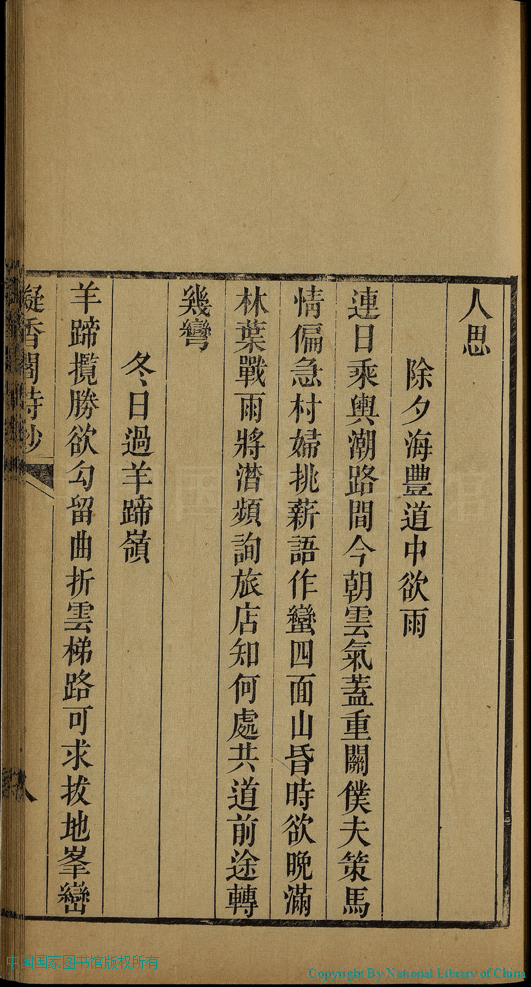 人思
除夕海豐道中欲雨
連日乘輿潮路間今朝雲氣蓋重關僕夫策馬
情偏急村婦挑薪語作蠻四面山昏時欲晚滿
林葉戰雨將潸頻詢旅店知何處共道前途轉
幾彎
冬日過羊蹄嶺
羊蹄攬勝欲勾留曲折雲梯路可求拔地峯巒
凝香閣詩鈔
八
中国国家图书馆版权所有
Copyright By National Library of China